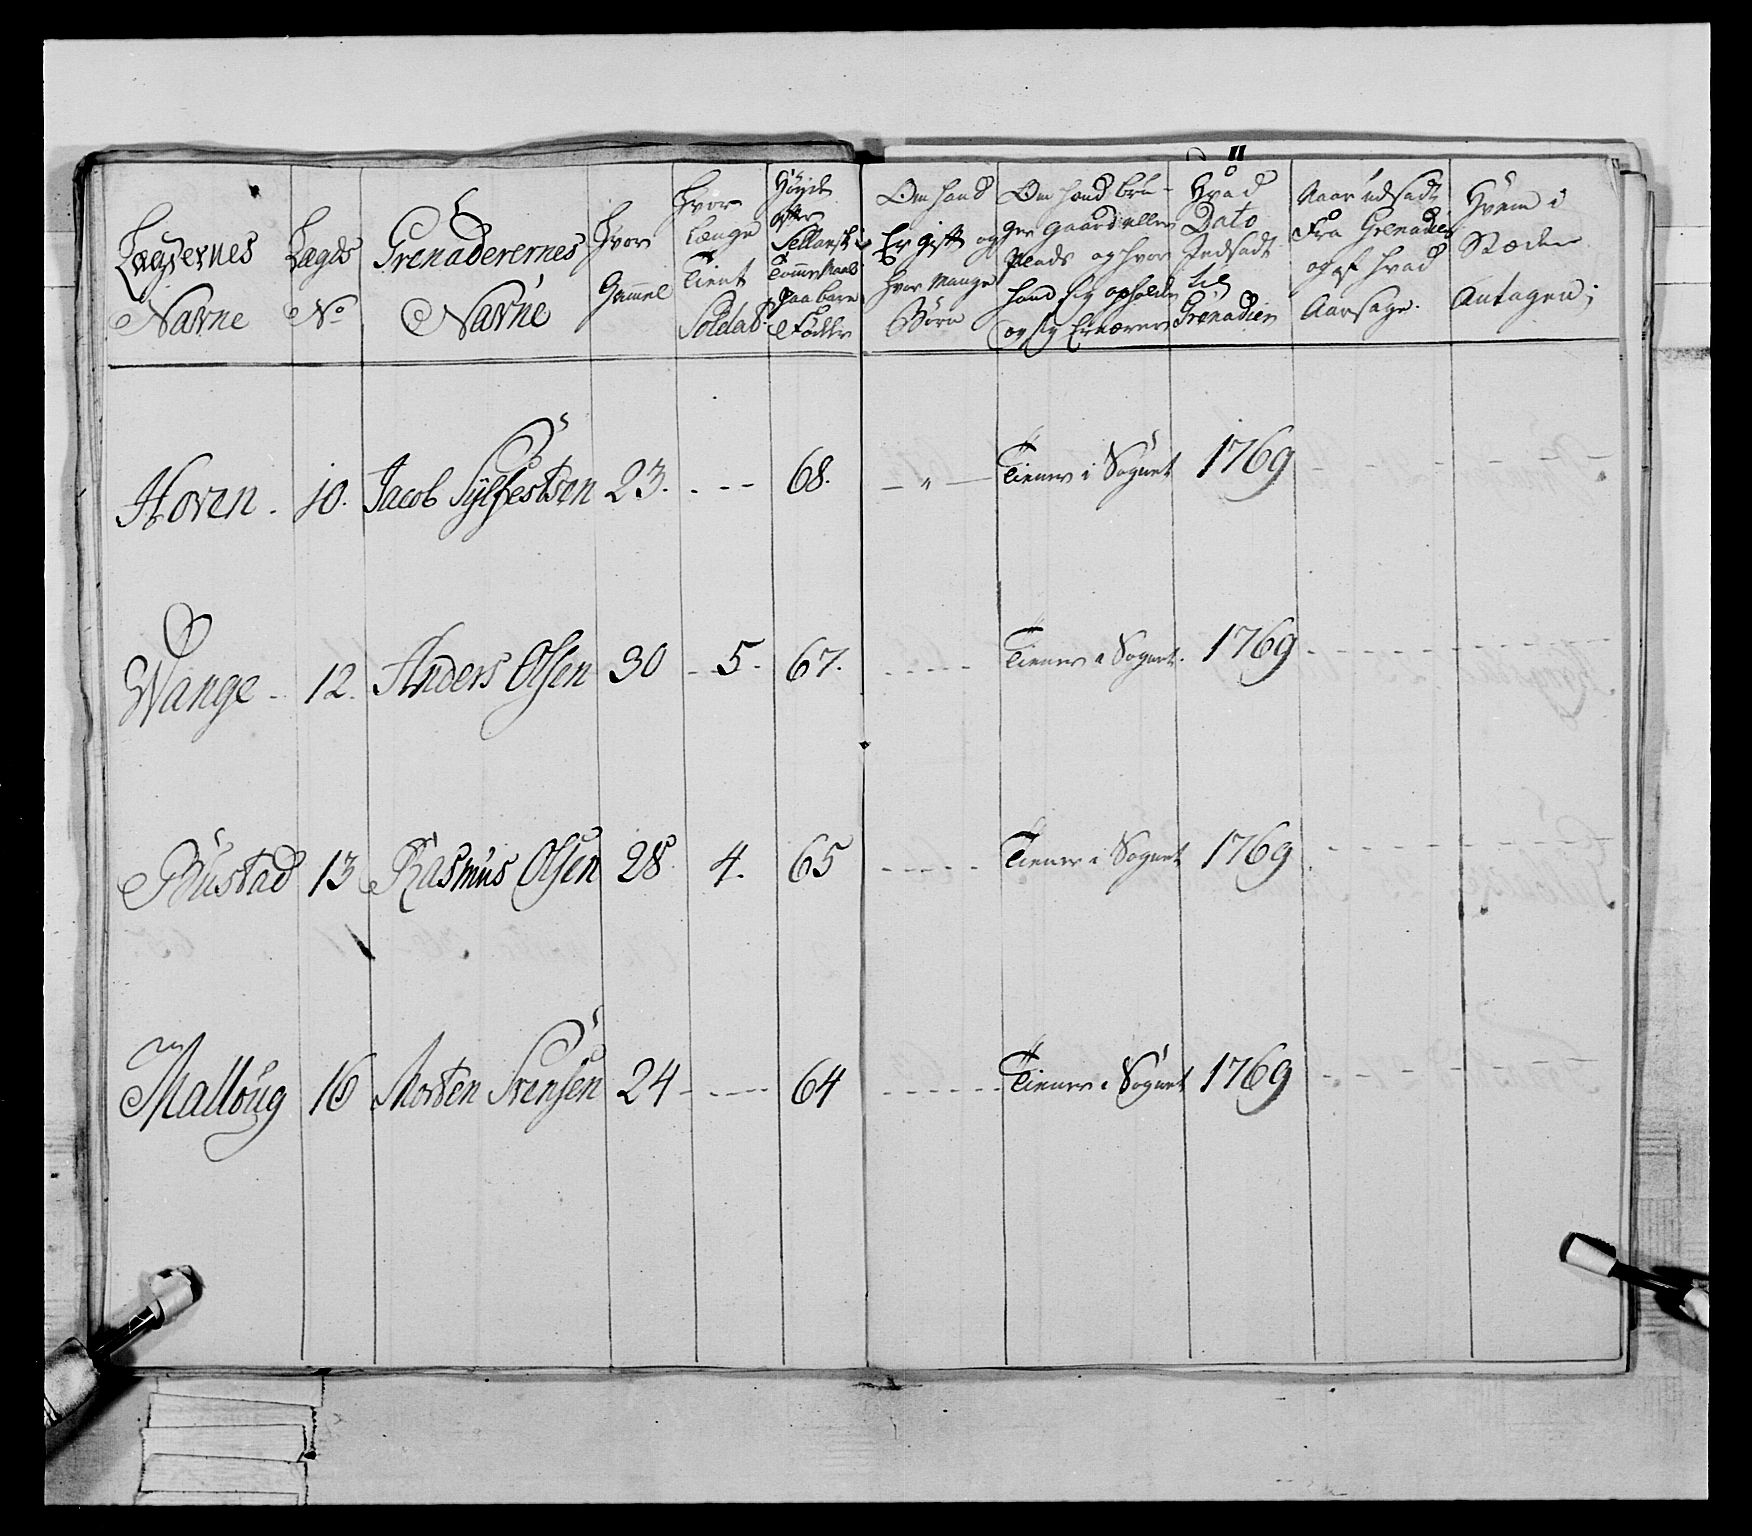 11
Lægdernes
Navne
Lægds
No
Grenaderernes
Navne
Hvor
Gammel
Hvor
Længe
Tient
Soldat
Høyde
efter
Sellansk
Tommemaal
paa bare
Fødder
Om hand
Er gift og
hvor mange
Børn
Om hand bru-
ger gaard eller
Plads og hvor
hand sig opholder
og sig Ernærer
Hvad
Dato
Indsadt
til
Grenadier
Naar udsadt
Fra Grenadier
og af hvad
Aarsage.
Hvem i
Stæden
Antagen;
Hoven. 10. Jacob Sylfestsen 23. - - - 68. - " - Tiener i Sognet 1769 - - -
Wange - 12. Anders Olsen 30 - 5. 67. - - - - Tiener i Sognet. 1769 - - -
Rustad 13 Rasmus Olsen 28 4. 65 - - - - Tiener i Sognet 1769 - - -
Malloug 16 Morten Svensen 24 - - - - 64 - - - - Tiener i Sognet 1769 - - -